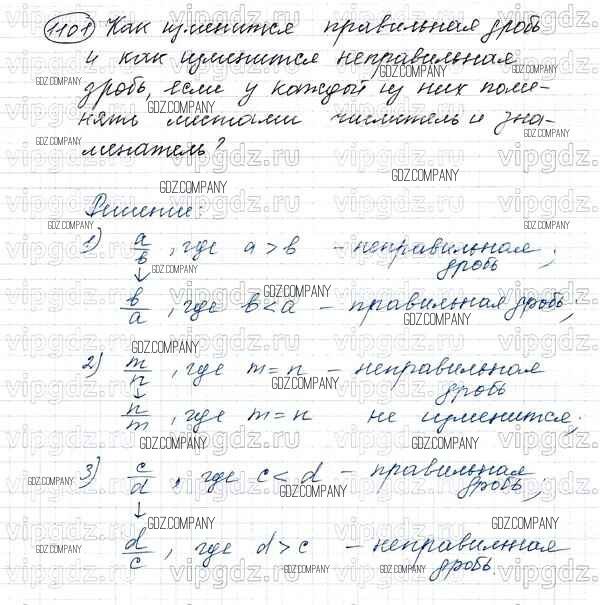 1101 Как изменится правильная дробь
и как изменится неправильная
дробь, если у каждой из них поме-
нять местами числитель и зна-
менатель?
Решение:
1) a/b, где a > b – неправильная дробь;
↓
b/a, где b < a – правильная дробь;
2) m/n, где m = n – неправильная дробь
↓
n/m, где m = n не изменится;
3) c/d, где c < d – правильная дробь;
↓
d/c, где d > c – неправильная дробь.
vipgdz.ru
GDZ.COMPANY